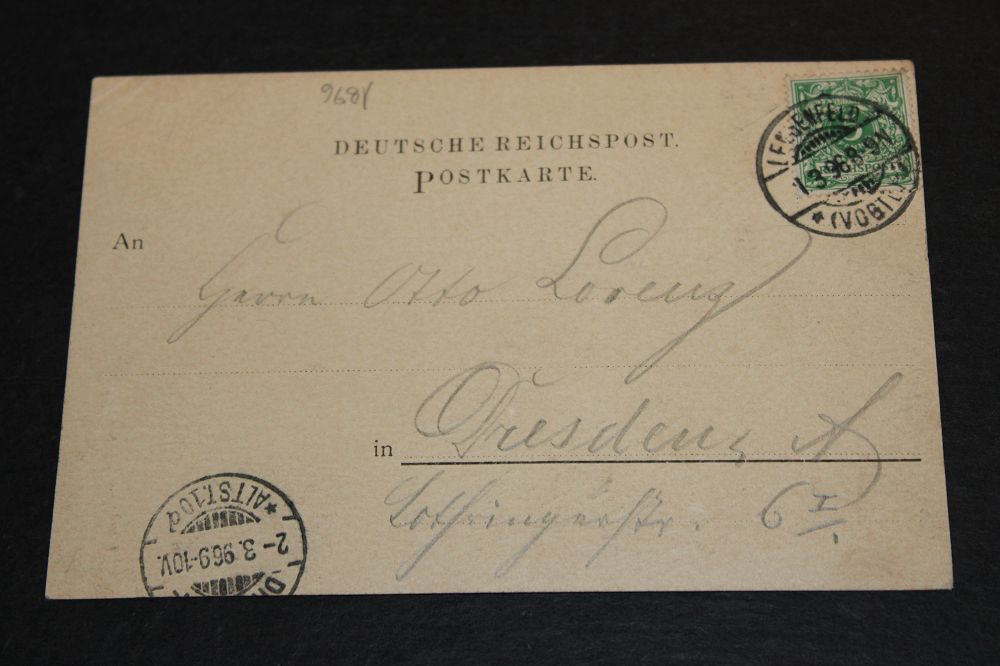 968Y
DEUTSCHE REICHSPOST.
POSTKARTE.
An
Herrn Otto Lorenz
in Dresden, A
Lothringerstr. 6 I.
LENGENFELD
1.3.96.8-9N
* (VOGTL.)
*ALTST.10d
2-3.96.9-10V.